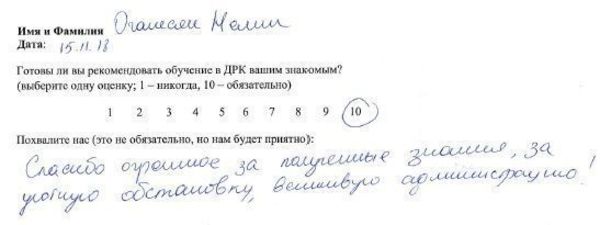 Имя и Фамилия Оганесян Мелик
Дата: 15.11.18
Готовы ли вы рекомендовать обучение в ДРК вашим знакомым?
(выберите одну оценку; 1 – никогда, 10 – обязательно)
1 2 3 4 5 6 7 8 9 10
Похвалите нас (это не обязательно, но нам будет приятно):
Спасибо огромное за полученные знания, за
уютную обстановку, вежливую администрацию!